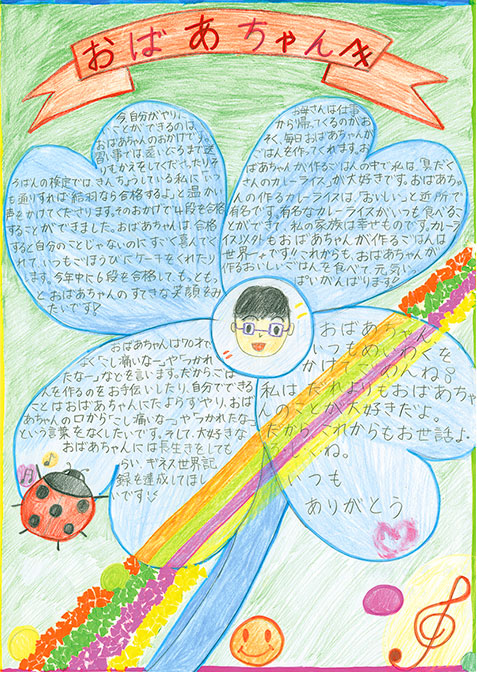 おばあちゃんへ
今自分がやりた
いことができるのは、
おばあちゃんのおかげです。
習い事では、遠いところまで送
りむかえをしてくださったり、そ
ろばんの検定では、きんちょうしている私に「い
つも通りすれば結羽なら合格するよ」と温かい
声をかけてくださいます。そのおかげで4段を合格
することができました。おばあちゃんは、合格
すると自分のことじゃないのにすごく喜んでく
れて、いつもごほうびにケーキをくれたりし
ます。今年中に6段を合格して、もっと、もっ
とおばあちゃんのすてきな笑顔をみ
たいです
お母さんは仕事
から帰ってくるのがお
そく、毎日おばあちゃんが
ごはんを作ってくれます。お
ばあちゃんが作るごはんの中で私は、「具だく
さんのカレーライス」が大好きです。おばあちゃ
んの作るカレーライスは、「おいしい」と近所で
有名です。有名なカレーライスがいつも食べるこ
とができて、私の家族は幸せものです。カレーラ
イス以外もおばあちゃんが作るごはんは
世界一です!!これからも、おばあちゃんが
作るおいしいごはんを食べて、元気いっ
ぱいがんばります
おばあちゃんは70才で
よく「こし痛いな〜」や「つかれ
たな〜」などを言います。だからごは
んを作るのをお手伝いしたり、自分でできる
ことはおばあちゃんにたよらずやり、おば
あちゃんの口から「こし痛いな〜」や「つかれたな〜」
という言葉をなくしたいです。そして、大好きな
おばあちゃんには長生きをしても
らい、ギネス世界記
録を達成してほし
いです
おばあちゃん
いつもめいわくを
かけてごめんね。
私はだれよりもおばあちゃ
んのことが大好きだよ。
だから、これからもお世話よ
ろしくね。
いつも
ありがとう